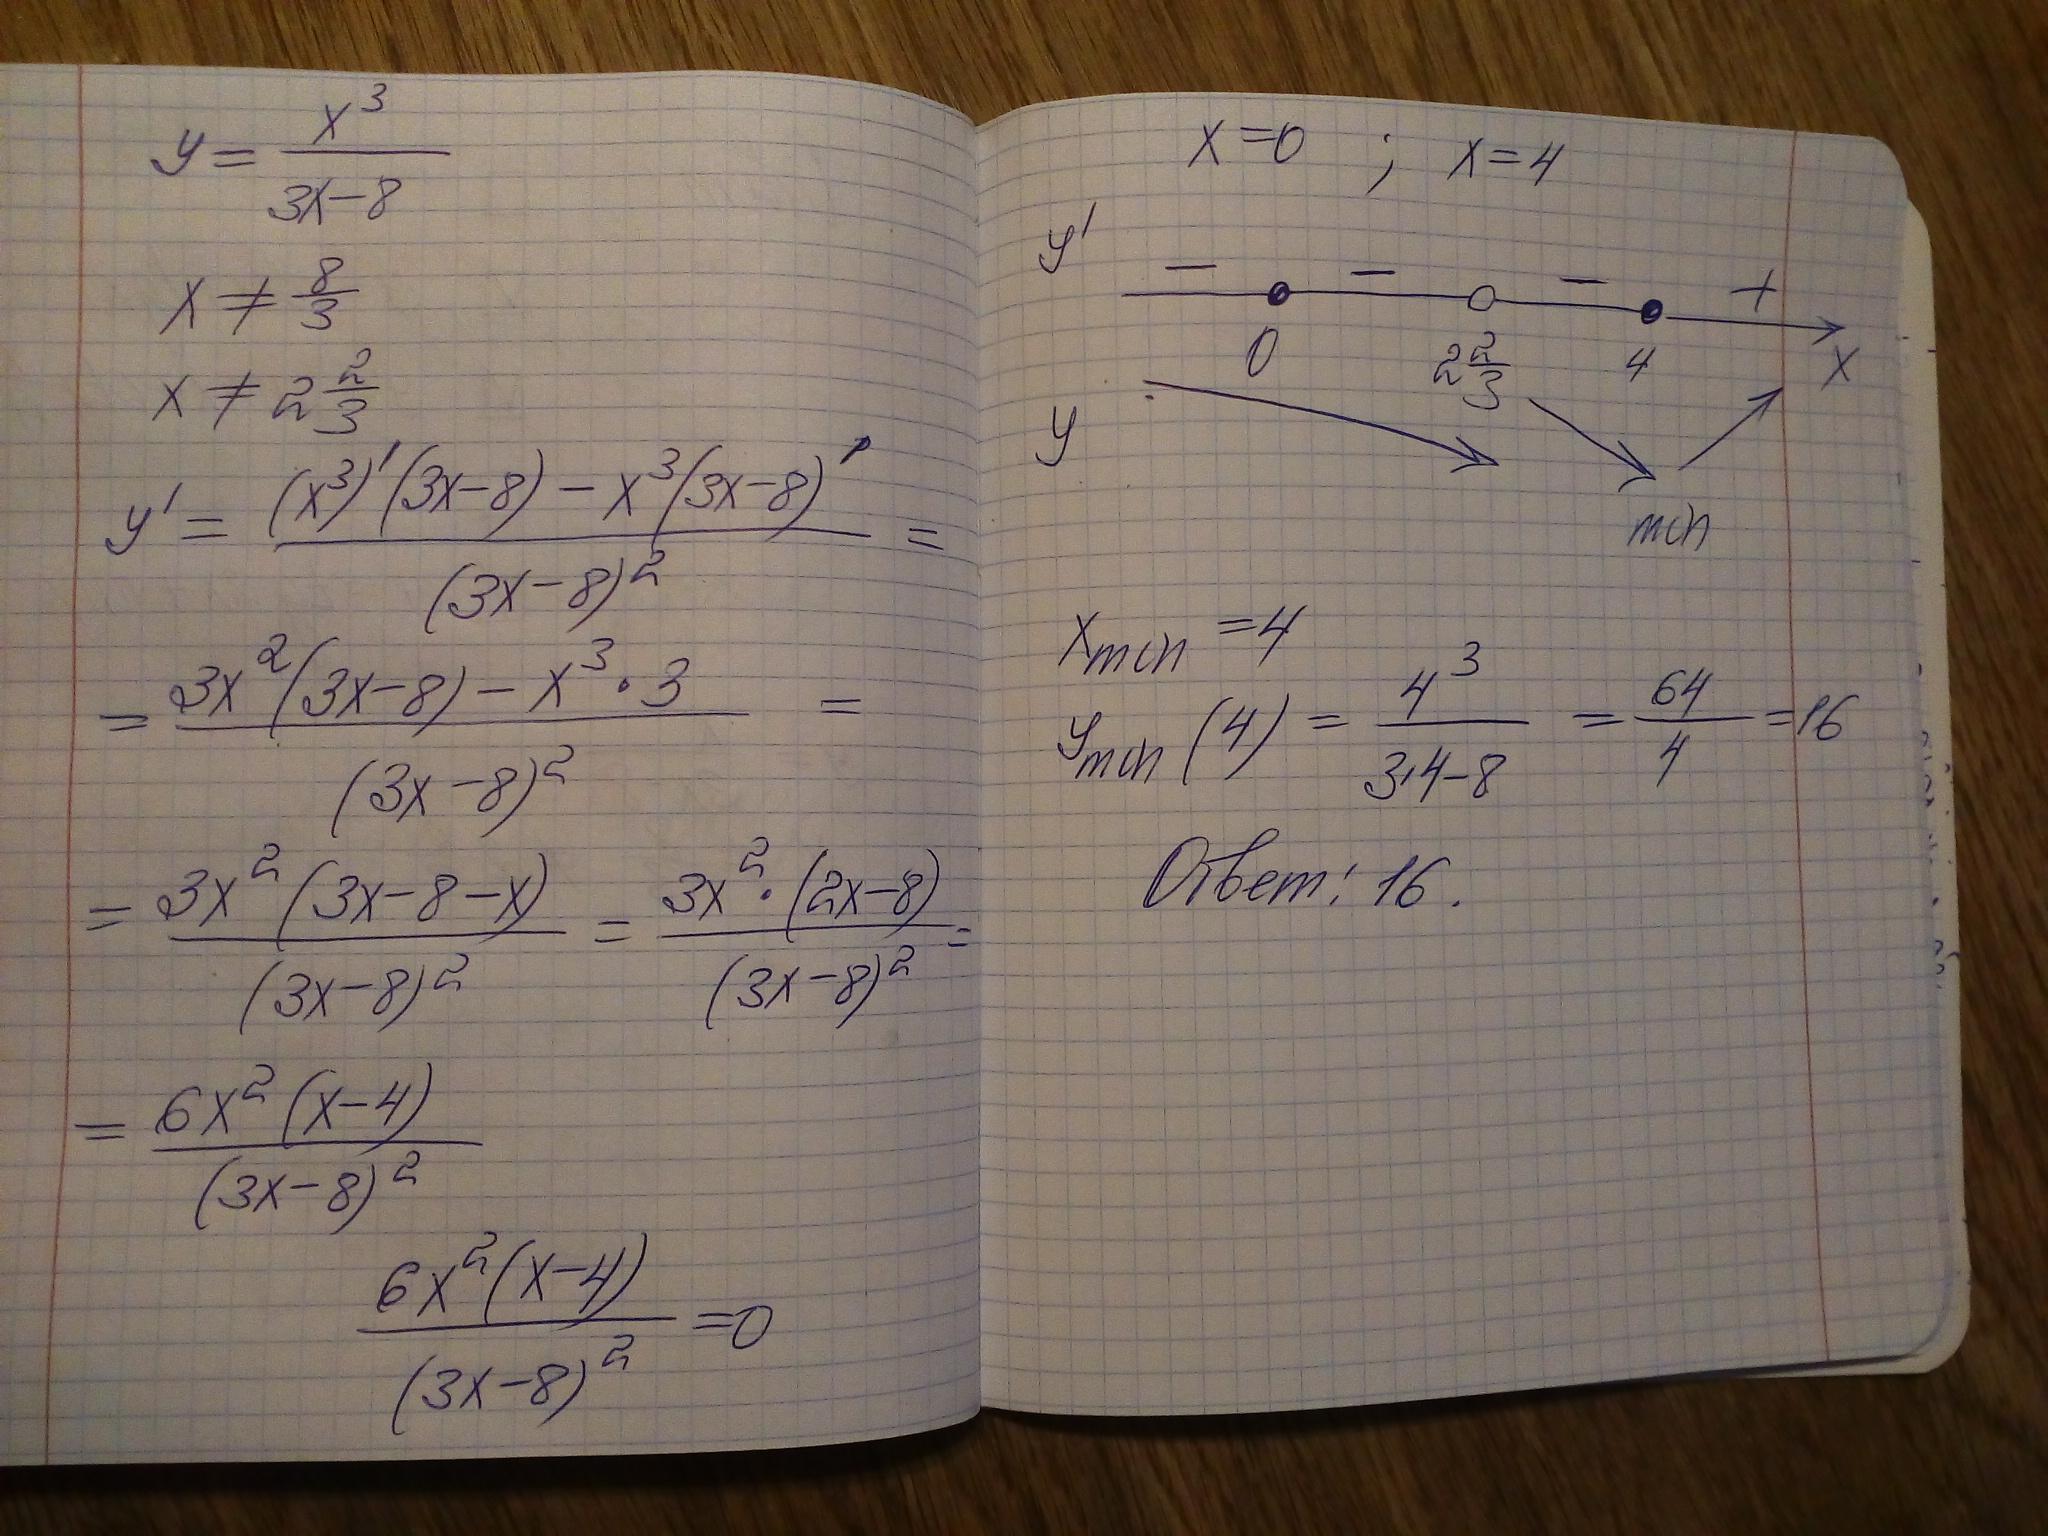 y = x³/(3x-8)
x ≠ 8/3
x ≠ 2 2/3
y' = ((x³)'(3x-8) - x³(3x-8)')/(3x-8)² =
= (3x²(3x-8) - x³·3)/(3x-8)² =
= (3x²(3x-8-x))/(3x-8)² = (3x²·(2x-8))/(3x-8)² =
= (6x²(x-4))/(3x-8)²
(6x²(x-4))/(3x-8)² = 0
x=0 ; x=4
y' − − − +
0 2 2/3 4 x
y
min
x min = 4
y min (4) = 4³/(3·4-8) = 64/4 = 16
Ответ: 16.